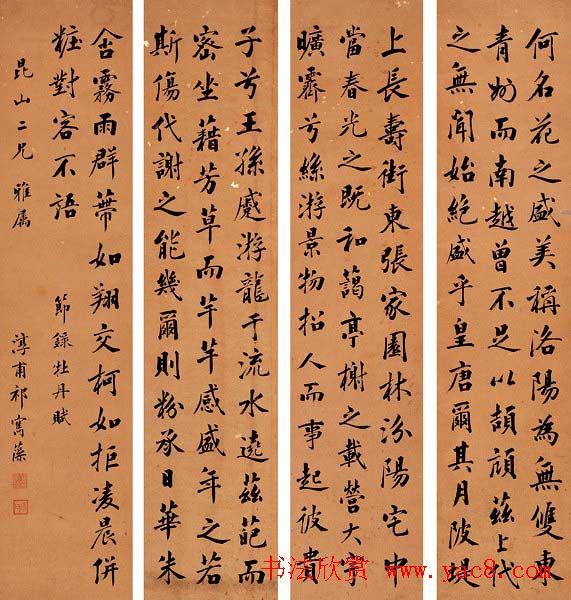 何名花之盛美稱洛陽為無雙東
青州而南越曾不足以頡頏茲上代
之無聞始絕盛乎皇唐爾其月陂堤
上長壽街東張家園林汾陽宅中
當春光之既和藹亭榭之載營天宇
曠霽兮絲游景物招人而事起彼貴
子兮王孫蹙游龍于流水遶茲葩而
密坐藉芳草而芊芊感盛年之若
斯傷代謝之能幾爾則粉承日華朱
含霧雨群蔕如翔交柯如拒凌晨併
粧對容不語
節錄牡丹賦
昆山二兄 雅属
淳甫祁寯藻
书法欣赏 www.yac8.com